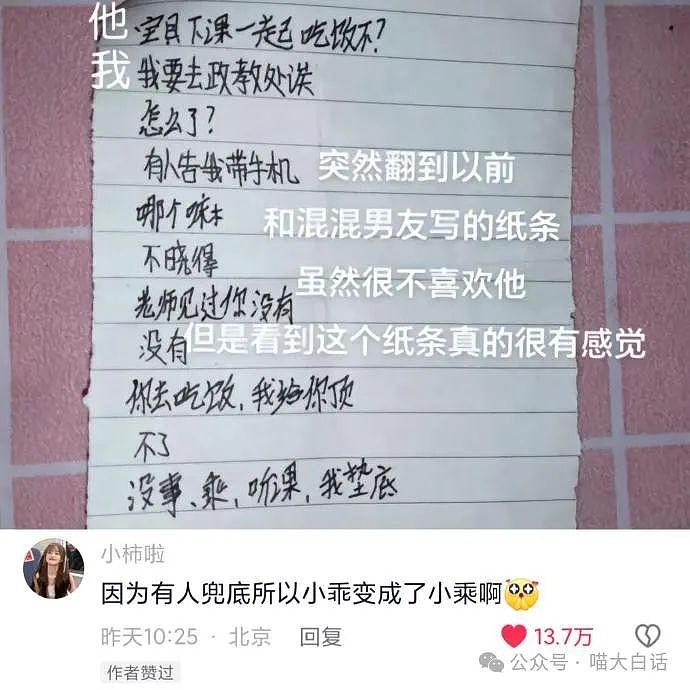 他 宝贝下课一起吃饭不?
我 我要去政教处诶
怎么了?
有人告我带手机
突然翻到以前
哪个嘛
和混混男友写的纸条
不晓得
虽然很不喜欢他
老师见过你没有
没有
但是看到这个纸条真的很有感觉
你去吃饭,我给你顶
不了
没事、乘,听课,我垫底
小柿啦
因为有人兜底所以小乖变成了小乘啊
昨天10:25 · 北京 回复 13.7万
作者赞过
公众号·喵大白话